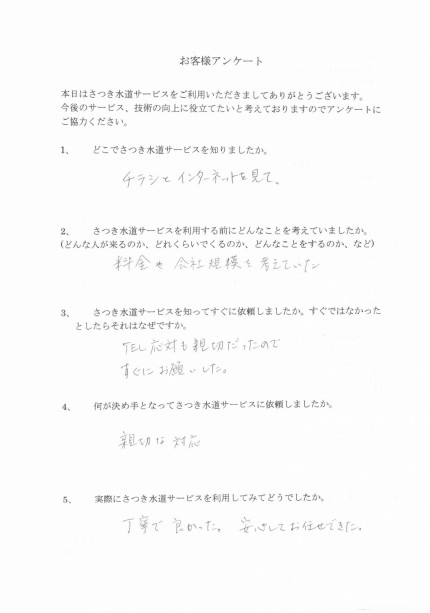 お客様アンケート
本日はさつき水道サービスをご利用いただきましてありがとうございます。
今後のサービス、技術の向上に役立てたいと考えておりますのでアンケートに
ご協力ください。
1、 どこでさつき水道サービスを知りましたか。
チラシとインターネットを見て。
2、 さつき水道サービスを利用する前にどんなことを考えていましたか。
(どんな人が来るのか、どれくらいでくるのか、どんなことをするのか、など)
料金や会社規模を考えていた
3、 さつき水道サービスを知ってすぐに依頼しましたか。すぐではなかった
としたらそれはなぜですか。
TEL応対も親切だったので
すぐにお願いした。
4、 何が決め手となってさつき水道サービスに依頼しましたか。
親切な対応
5、 実際にさつき水道サービスを利用してみてどうでしたか。
丁寧で良かった。安心してお任せできた。